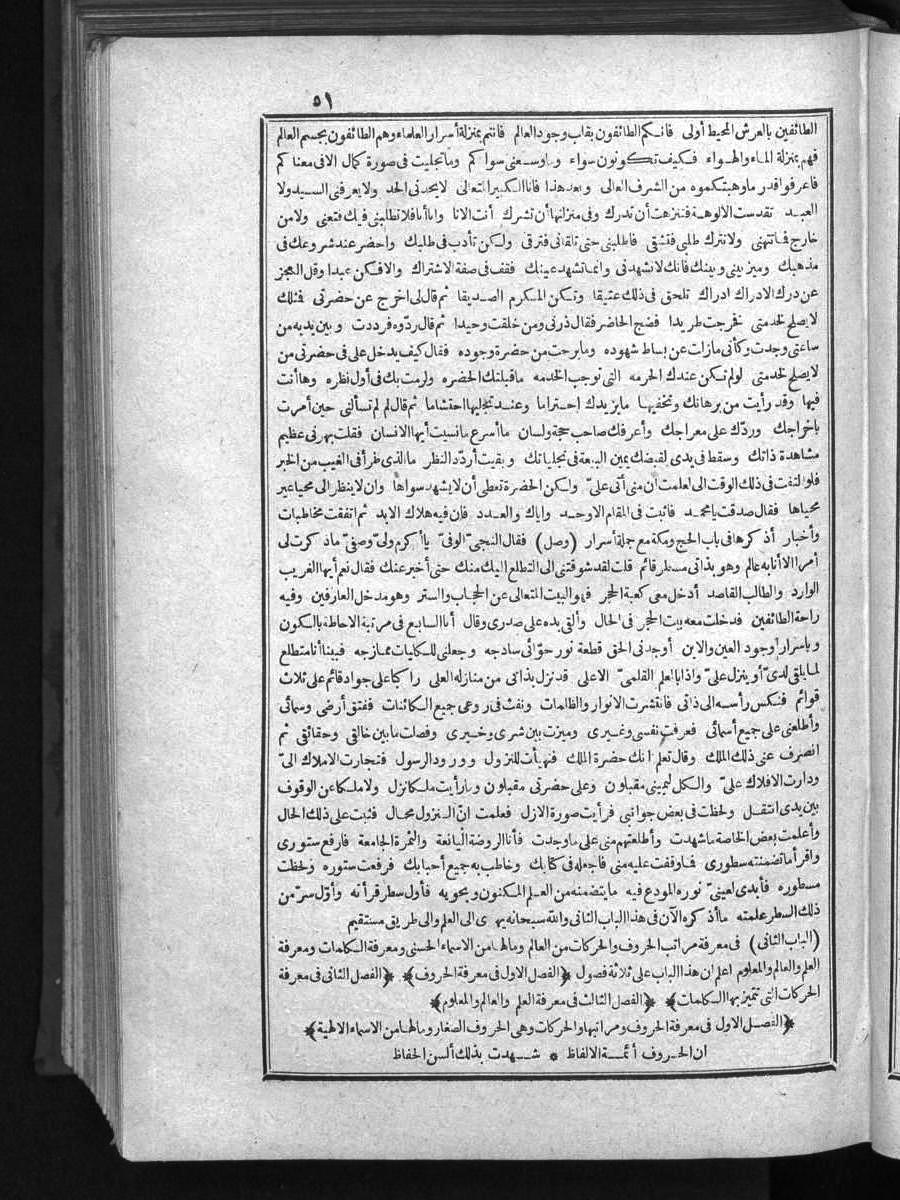 ٥١
الطائفين بالعرش المحيط أولى فانكم الطائفون بقلب وجود العالم فأنتم بمنزلة أسرار العلماء وهم الطائفون بجسم العالم
فهم بمنزلة الماء والهواء فكيف تكونون سواء وما وسعنى سواكم وما تجليت فى صورة كمال الا فى معناكم
فاعرفوا قدر ما وهبتكموه من الشرف العالى وبعد هذا فانا الكبير المتعالى لا يحدنى الحد ولا يعرفنى السيد ولا
العبد تقدست الالوهة فتنزهت أن تدرك وفى منزلتها أن تشرك أنت الانا وانا أنا فلا تطلبنى فيك فتعنى ولا من
خارج فما تتهنى ولا تترك طلبى فتشقى فاطلبنى حتى تلقانى فترقى ولكن تأدب فى طلبك واحضر عند شروعك فى
مذهبك وميز بينى وبينك فانك لا تشهدنى وانما تشهد عينك فقف فى صفة الاشتراك والا فكن عبدا وقل العجز
عن درك الادراك ادراك تلحق فى ذلك عتيقا وتكن المكرم الصديقا ثم قال لى اخرج عن حضرتى فمثلك
لا يصلح لخدمتى فخرجت طريدا فضج الحاضر فقال ذرنى ومن خلقت وحيدا ثم قال ردّوه فرددت وبين يديه من
ساعتى وجدت وكأنى ما زلت عن بساط شهوده وما برحت من حضرة وجوده فقال كيف يدخل على فى حضرتى من
لا يصلح لخدمتى لو لم تكن عندك الحرمه التى توجب الخدمه ما قبلتك الحضره ولرمت بك فى أول نظره وها أنت
فيها وقد رأيت من برهانك وتحفيها ما يزيدك احتراما وعند تجليها احتشاما ثم قال لم لم تسألنى حين أمرت
باخراجك وردّك على معراجك وأعرفك صاحب حجة ولسان ما أسرع ما نسيت أيها الانسان فقلت بهرنى عظيم
مشاهدة ذاتك وسقط فى يدى لقبضك يمين البيعة فى تجلياتك وبقيت أردّد النظر ما الذى طرأ فى الغيب من الخبر
فلو التفت فى ذلك الوقت الى لعلمت أن منى أتى علىّ ولكن الحضرة تعطى أن لا يشهد سواها وان لا ينظر الى محيا غير
محياها فقال صدقت يا محمد فاثبت فى المقام الاوحد واياك والعدد فان فيه هلاك الابد ثم اتفقت مخاطبات
وأخبار أذكرها فى باب الحج ومكة مع جملة أسرار (وصل) فقال النجىّ الوفىّ يا أكرم ولىّ وصفىّ ما ذكرت لى
أمرا الا أنا به عالم وهو بذاتى مسطر قائم قلت لقد شوقتنى الى التطلع اليك منك حتى أخبر عنك فقال نعم أيها الغريب
الوارد والطالب القاصد أدخل معى كعبة الحجر فهو البيت المتعالى عن الحجاب والستر وهو مدخل العارفين وفيه
راحة الطائفين فدخلت معه بيت الحجر فى الحال وألقى يده على صدرى وقال أنا السابع فى مرتبة الاحاطة بالكون
وباسرار وجود العين والاين أوجدنى الحق قطعة نور حوّائى ساذجه وجعلنى للكليات ممازجه فبينا أنا متطلع
لما يلقى لدىّ أو ينزل علىّ واذا بالعلم القلمىّ الاعلى قد نزل بذاتى من منازله العلى راكبا على جواد قائم على ثلاث
قوائم فنكس رأسه الى ذاتى فانتشرت الانوار والظلمات ونفث فى روعى جميع الكائنات ففتق أرضى وسمائى
وأطلعنى على جميع أسمائى فعرفت نفسى وغيرى وميزت بين شرى وخيرى وفصلت ما بين خالقى وحقائقى ثم
انصرف عنى ذلك الملك وقال تعلم انك حضرة الملك فتهيأت للنزول وورود الرسول فتجارت الاملاك الىّ
ودارت الافلاك علىّ والكل ليمينى مقبلون وعلى حضرتى مقبلون وما رأيت ملكا نزل ولا ملكا عن الوقوف
بين يدى انتقل ولحظت فى بعض جوانبى فرأيت صورة الازل فعلمت انّ النزول محال فثبت على ذلك الحال
وأعلمت بعض الخاصة ما شهدت وأطلعتهم منى على ما وجدت فأنا الروضة اليانعة والثمرة الجامعة فارفع ستورى
واقرأ ما تضمنته سطورى فما وقفت عليه منى فاجعله فى كتابك وخاطب به جميع أحبابك فرفعت ستوره ولحظت
مسطوره فأبدى لعينىّ نوره المودع فيه ما يتضمنه من العلم المكنون ويحويه فأول سطر قرأته وأوّل سرّ من
ذلك السطر علمته ما أذكره الآن فى هذا الباب الثانى والله سبحانه يهدى الى العلم والى طريق مستقيم
(الباب الثانى) فى معرفة مراتب الحروف والحركات من العالم وما لها من الاسماء الحسنى ومعرفة الكلمات ومعرفة
العلم والعالم والمعلوم اعلم ان هذا الباب على ثلاثة فصول ﴿الفصل الاول فى معرفة الحروف﴾ ﴿الفصل الثانى فى معرفة
الحركات التى تتميز بها الكلمات﴾ ﴿الفصل الثالث فى معرفة العلم والعالم والمعلوم﴾
﴿الفصل الاول فى معرفة الحروف ومراتبها والحركات وهى الحروف الصغار وما لها من الاسماء الالهية﴾
ان الحروف أئمة الالفاظ * شهدت بذلك ألسن الحفاظ